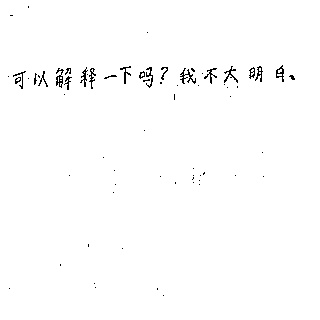 可以解释一下吗？我不大明白、